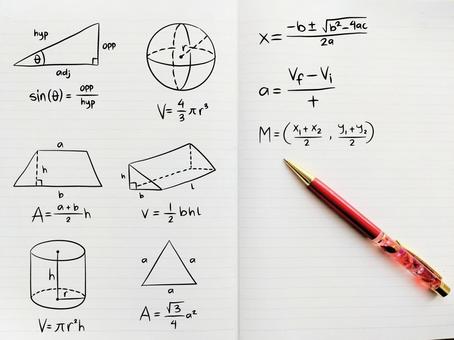 hyp
opp
θ
adj
sin(θ) = opp/hyp
r
V = 4/3 πr³
a
h
b
A = a+b/2 h
h
b
l
V = 1/2 bhl
h
r
V = πr²h
a
a
a
A = √3/4 a²
x = -b ± √b²-4ac/2a
a = Vf - Vi/t
M = (x₁+x₂/2, y₁+y₂/2)